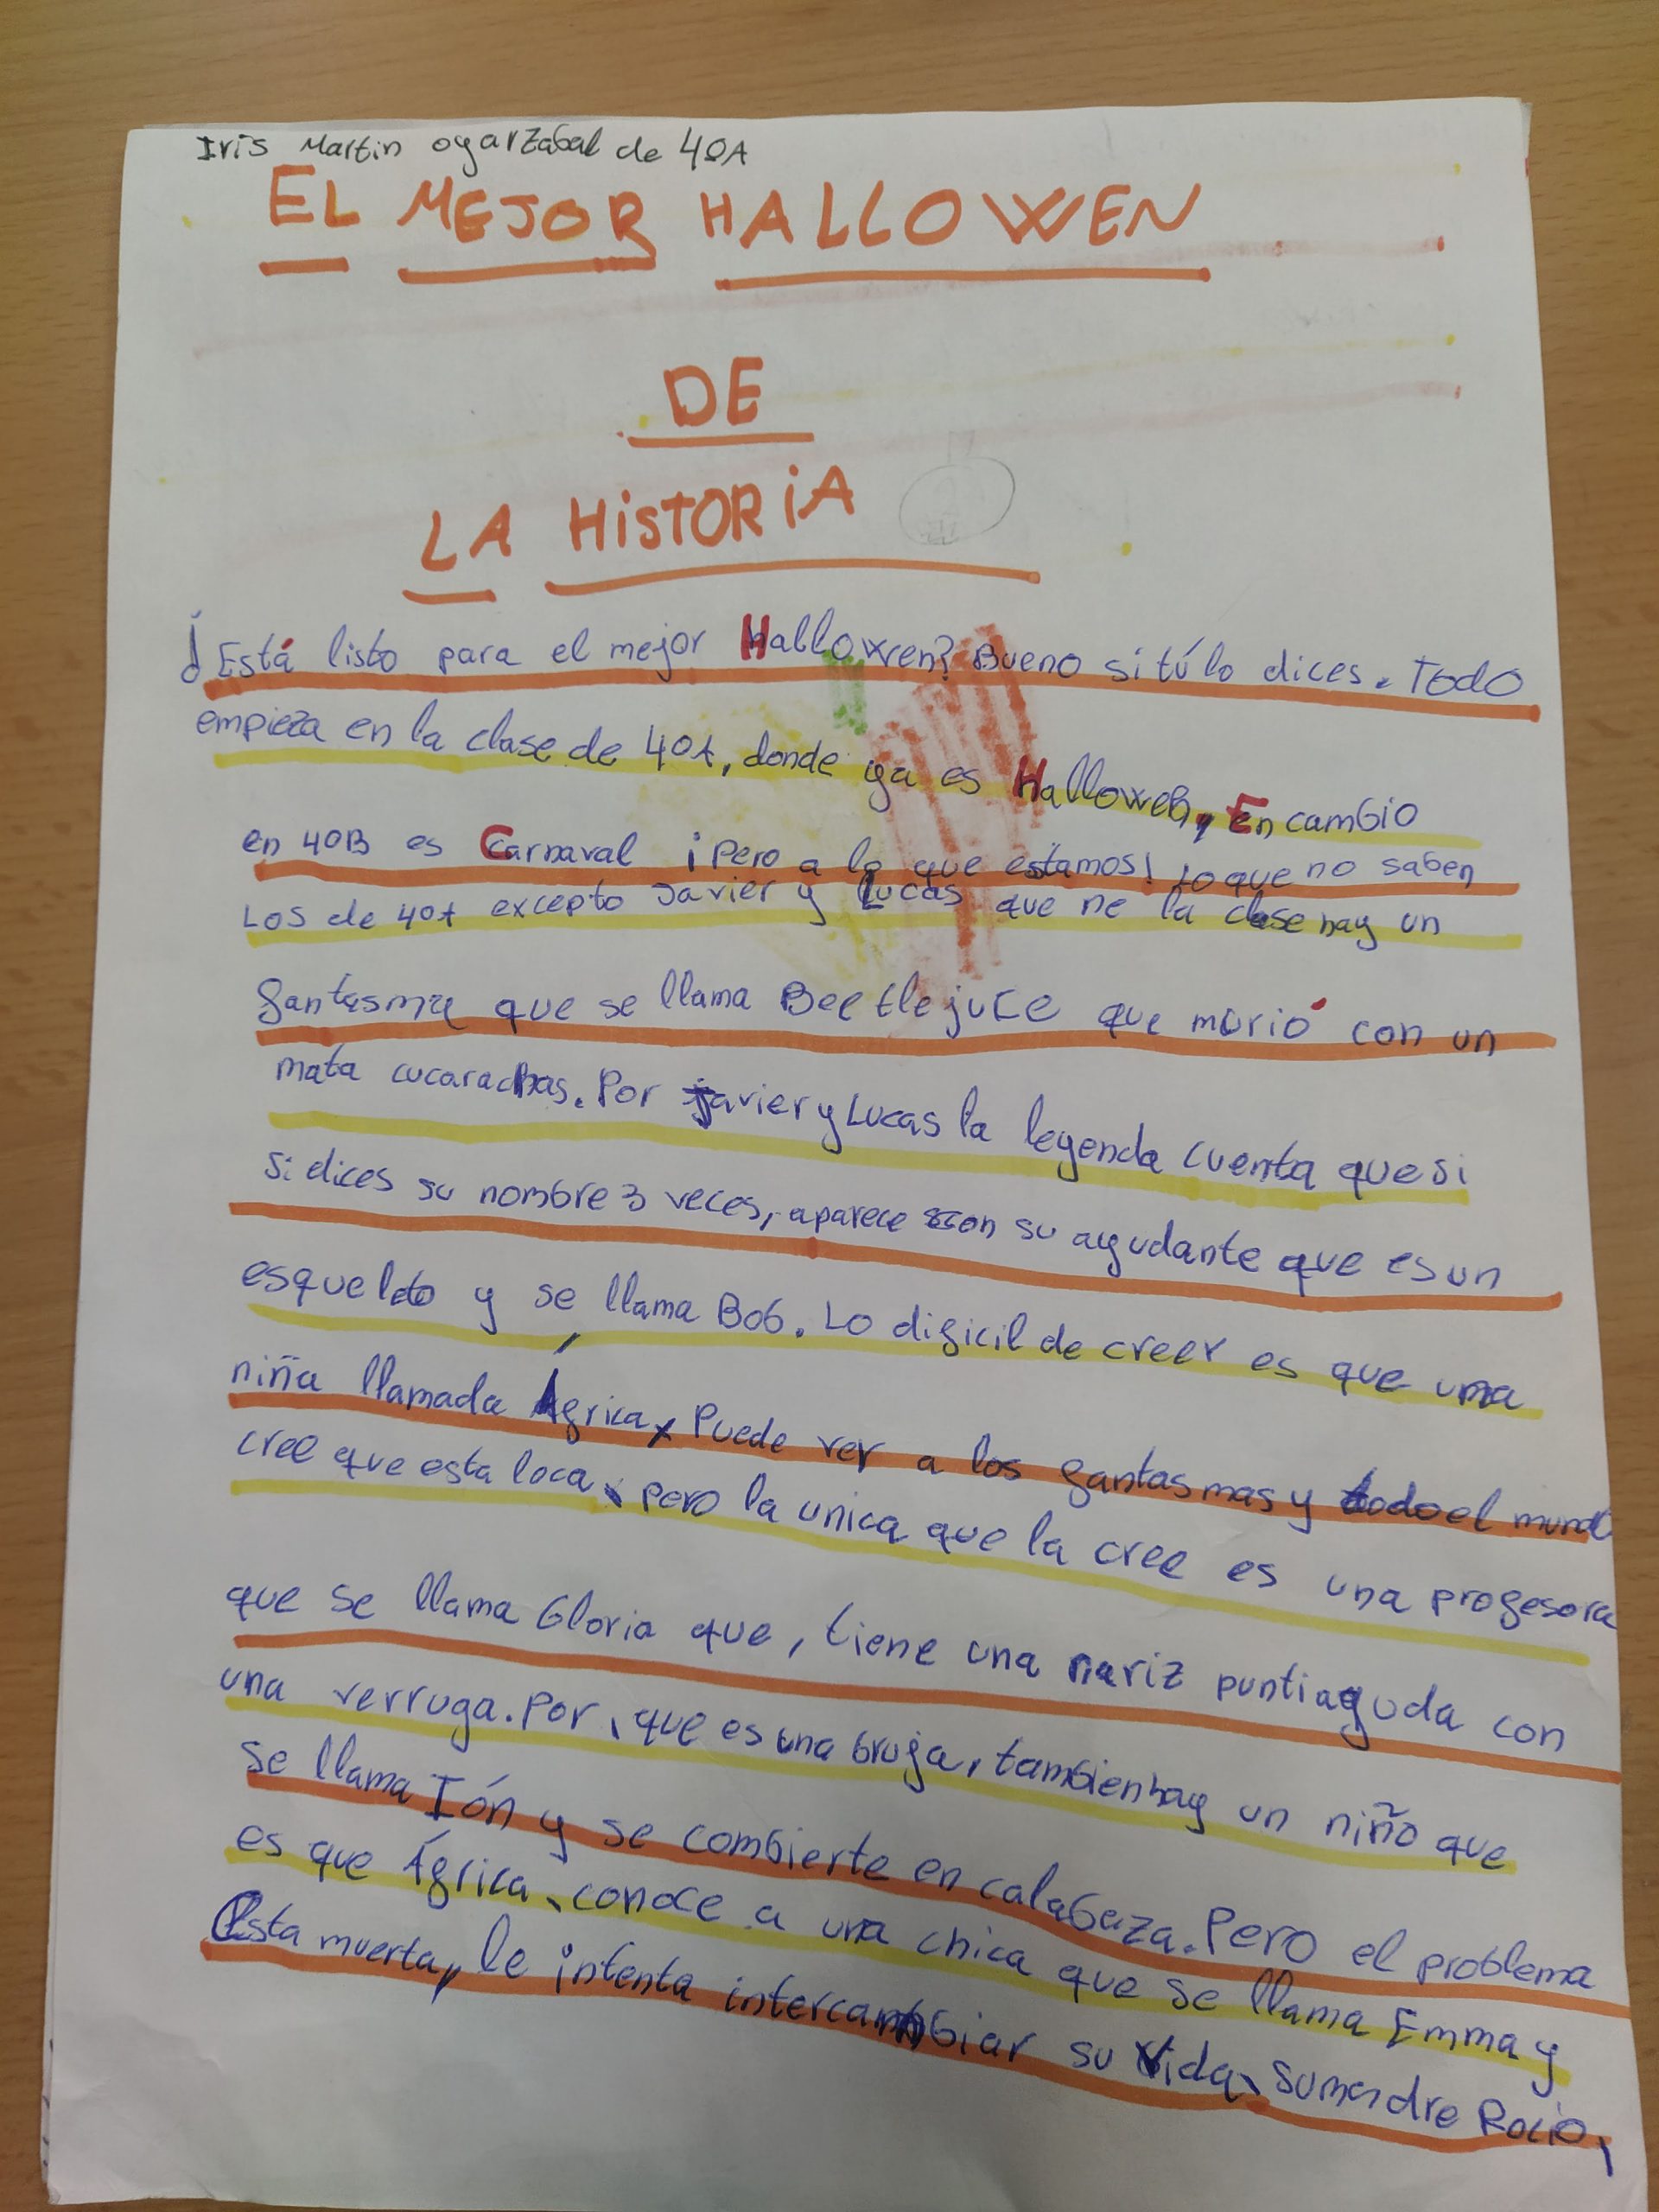 Iris Martin ogarzabal de 4ºA
EL MEJOR HALLOWEN
DE
LA HiSTORiA
¿Está listo para el mejor Hallowen? Bueno si tú lo dices. Todo
empieza en la clase de 4ºA, donde ya es Halloween, En cambio
en 4ºB es Carnaval ¡Pero a lo que estamos! Lo que no saben
Los de 4ºA excepto Javier y Lucas que ne la clase hay un
fantasma que se llama Beetlejuice que murió con un
mata cucarachas. Por Javier y Lucas la leyenda cuenta que si
si dices su nombre 3 veces, aparece con su ayudante que es un
esqueleto y se llama Bob. Lo dificil de creer es que una
niña llamada África, Puede ver a los fantasmas y todo el mundo
cree que esta loca, pero la unica que la cree es una profesora
que se llama Gloria que, tiene una nariz puntiaguda con
una verruga. Por, que es una bruja, tambien hay un niño que
se llama Ión y se combierte en calabaza. Pero el problema
es que África, conoce a una chica que se llama Emma y
Esta muerta, le intenta intercambiar su vida, su madre Rocio,